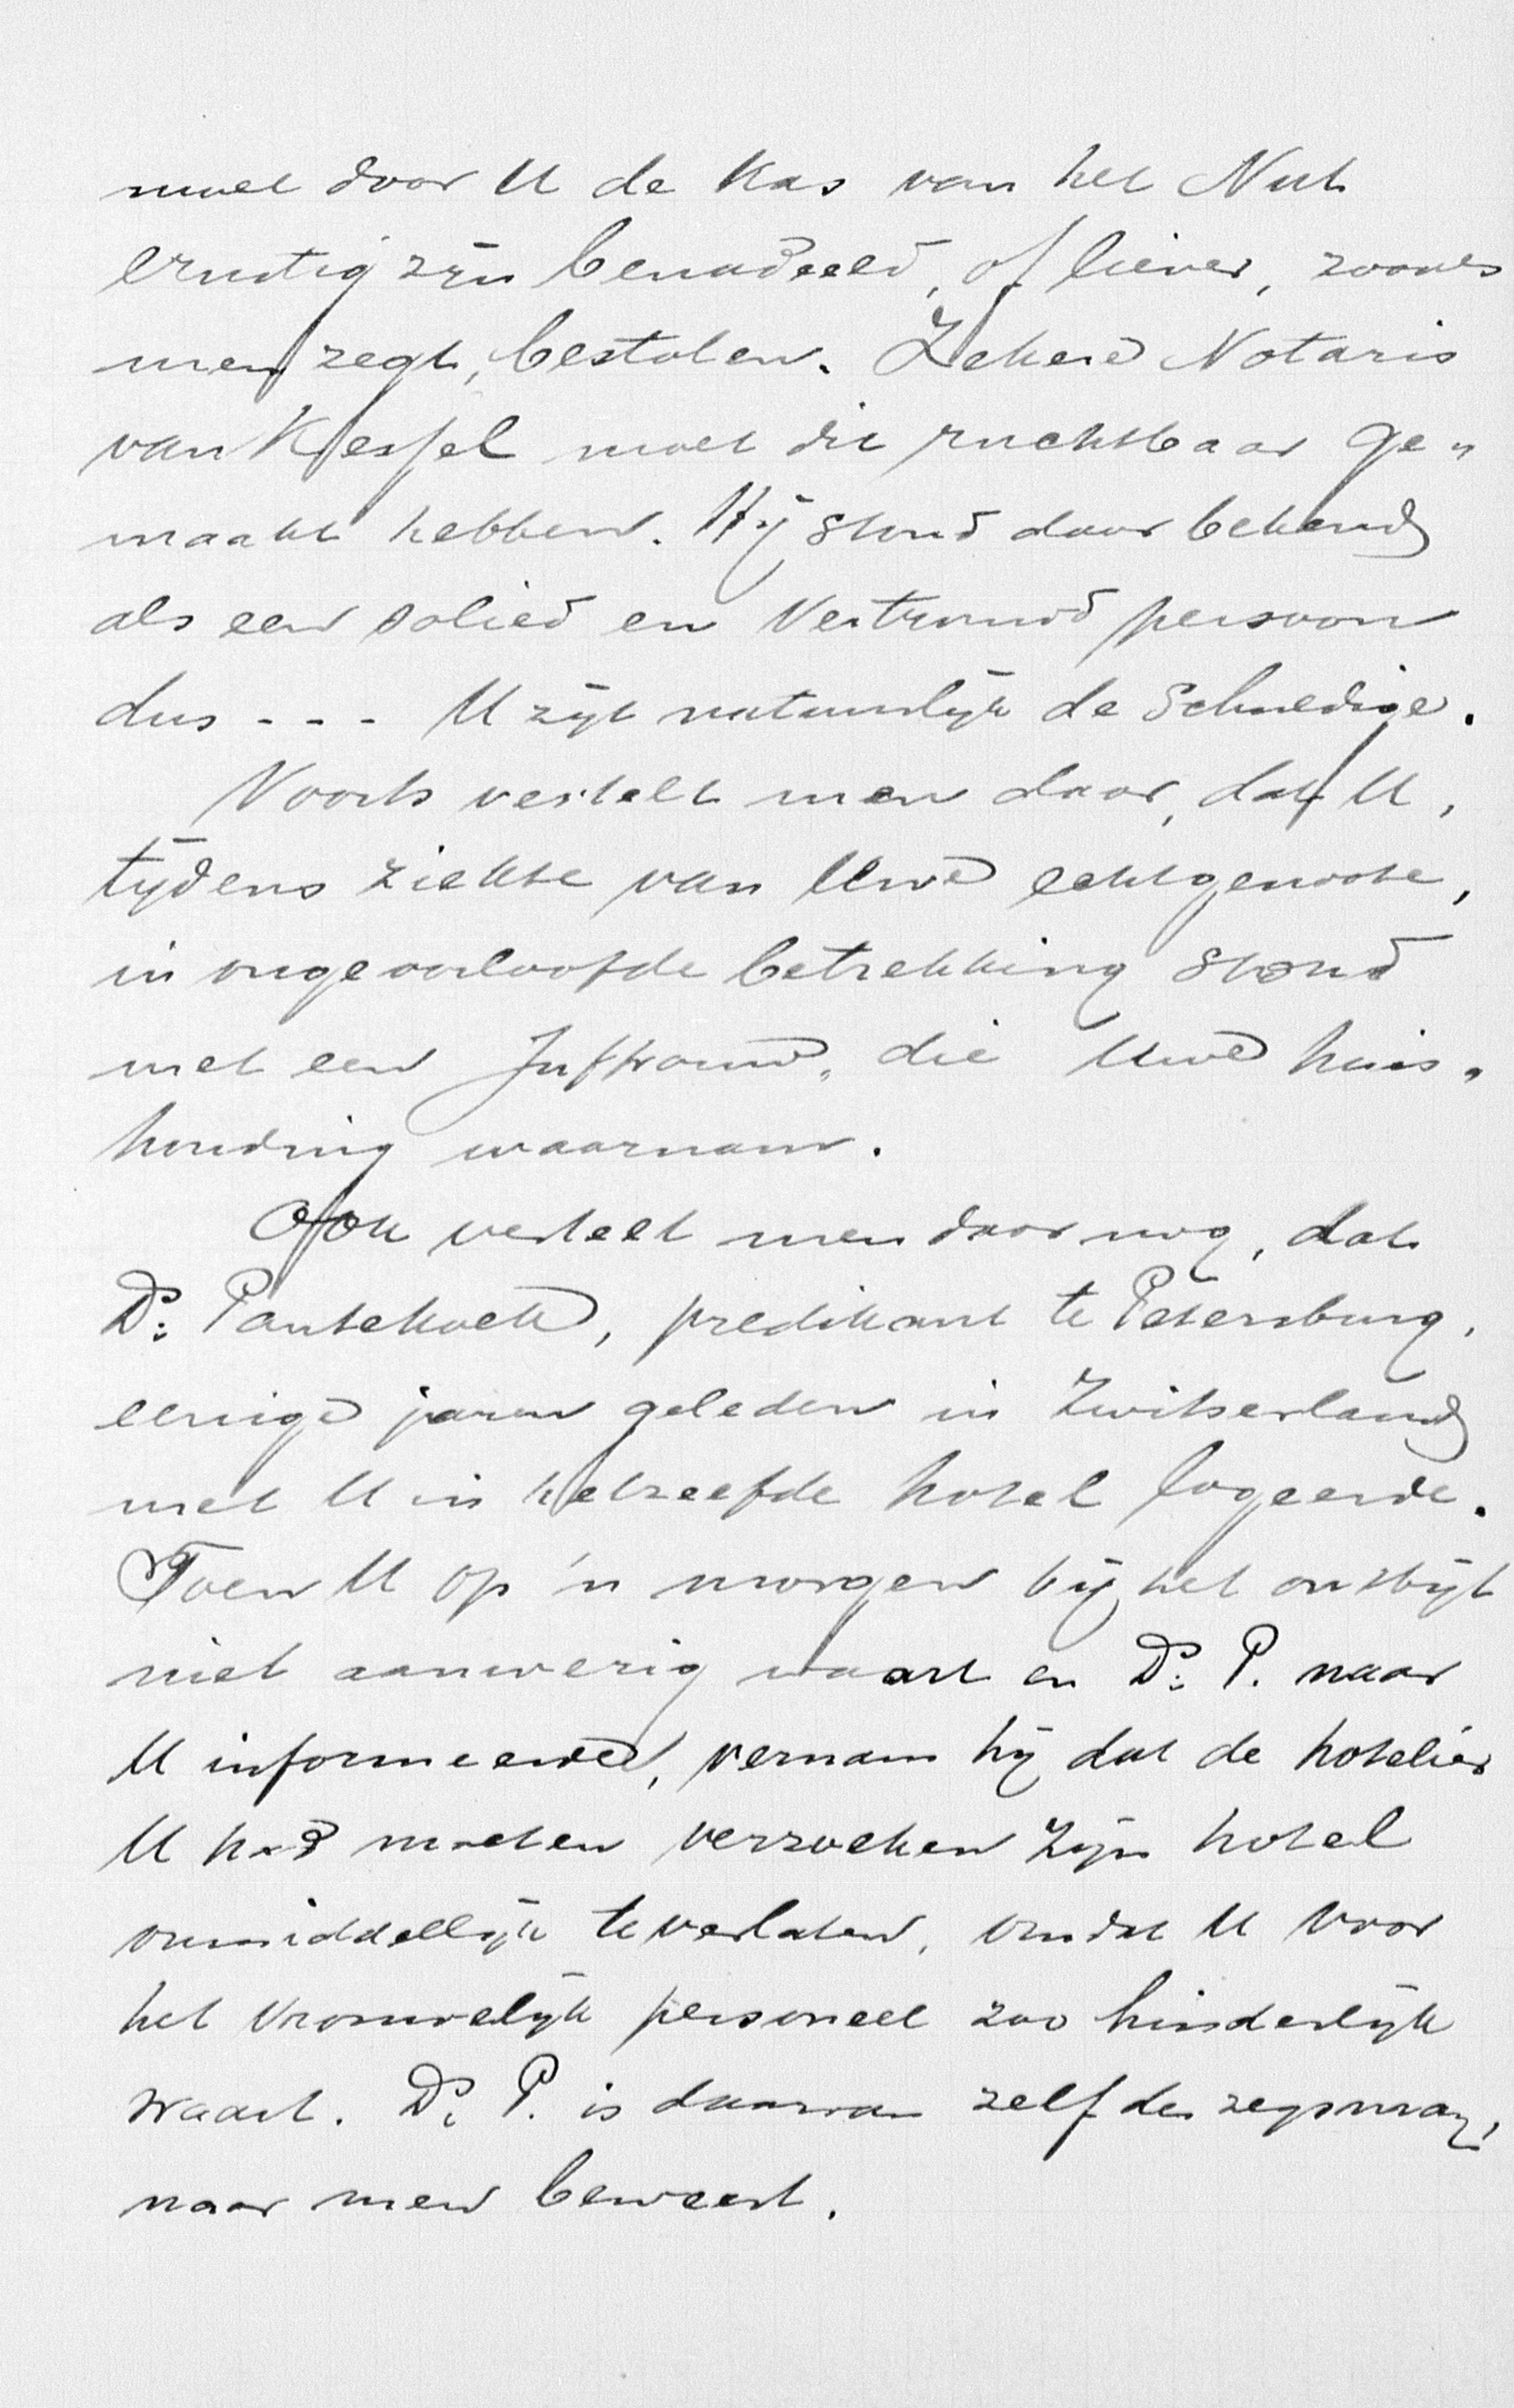 moet door U de kas van het Nut
ernstig zijn benadeeld, of liever, zooals
men zegt, bestolen. Zekere Notaris
van Kessel moet dit ruchtbaar ge„
maakt hebben. Hij stond daar bekend
als een solied en vertrouwd persoon
dus - - - U zijt natuurlijk de schuldige.
Voorts vertelt men daar, dat U,
tijdens ziekte van Uwe echtgenoote,
in ongeoorloofde betrekking stond
met een Juffrouw, die Uwe huis„
houding waarnam.
Ook vertelt men daar nog, dat
Ds. Pantekoek, predikant te Petersburg,
eenige jaren geleden in Zwitserland
met U in hetzelfde hotel logeerde.
Toen U op 'n morgen bij het ontbijt
niet aanwezig waart en Ds. P. naar
U informeerde, vernam hij dat de hotelier
U had moeten verzoeken zijn hotel
onmiddellijk te verlaten, omdat U voor
het vrouwelijk personeel zoo hinderlijk
waart. Ds. P. is daarvan zelf de zegsman,
naar men beweert.